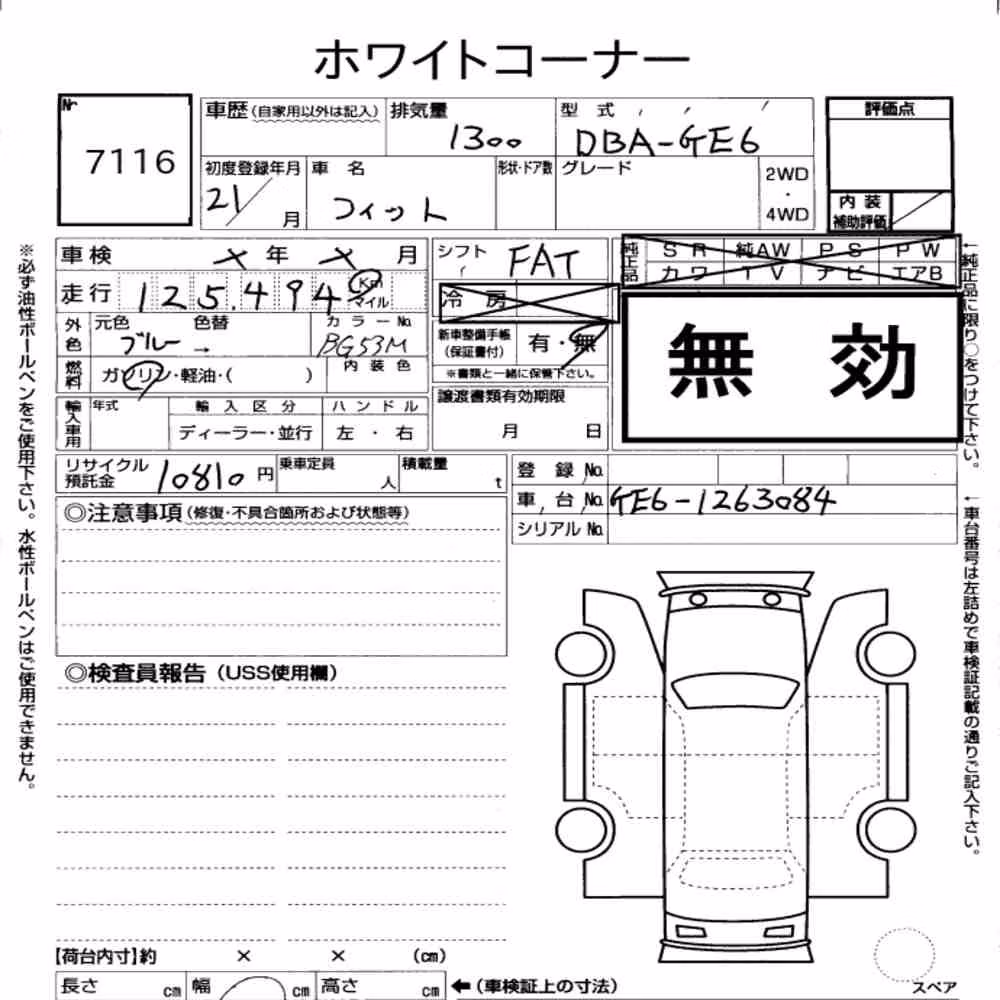 ホワイトコーナー
Nr 7116
車歴(自家用以外は記入) 排気量 1300 型式 DBA-GE6 評価点
初度登録年月 21/ 月 車名 フィット 形状・ドア数 グレード 2WD・4WD 内装補助評価
車検 × 年 × 月 シフト FAT 純正品 SR 純AW PS PW
カワ TV ナビ エアB
走行 125.494 Km マイル 冷房
外色 元色 ブルー 色替 → カラーNo. BG53M 新車整備手帳(保証書付) 有・無
無効
燃料 ガソリン・軽油・( ) 内装色 ※書類と一緒に保管下さい。
輸入車用 年式 輸入区分 ハンドル 譲渡書類有効期限
ディーラー・並行 左・右 月 日
リサイクル預託金 10810 円 乗車定員 人 積載量 t 登録No.
車台No. GE6-1263084
シリアルNo.
◎注意事項(修復・不具合箇所および状態等)
◎検査員報告(USS使用欄)
【荷台内寸】約 × × (cm)
長さ cm 幅 cm 高さ cm ←(車検証上の寸法)
スペア
※必ず油性ボールペンをご使用下さい。水性ボールペンはご使用できません。
←純正品に限り○をつけて下さい。
←車台番号は左詰めで車検証記載の通りご記入下さい。